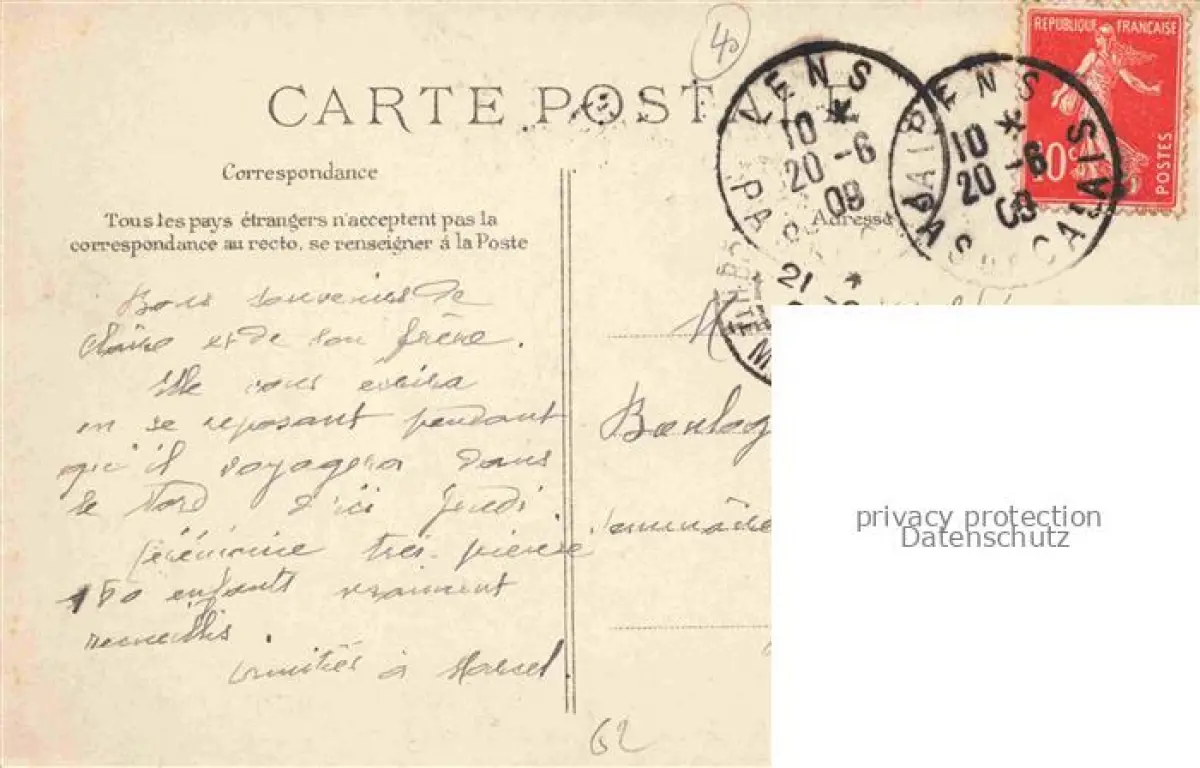 40
CARTE POSTALE
REPUBLIQUE FRANÇAISE
10c
POSTES
LENS
10 *
20 -6
09
PAS
LENS
10 *
20 -6
09
PAS DE CALAIS
21 *
Correspondance
Tous les pays étrangers n'acceptent pas la
correspondance au recto, se renseigner à la Poste
Adresse
Bons souvenirs de
Claire et de son frère.
Elle vous écrira
en se reposant pendant
qu'il voyagera dans
le Nord d'ici jeudi.
Cérémonie très pieuse
150 enfants vraiment
recueillis.
amitiés à Marcel
M
Boulog
62
privacy protection
Datenschutz